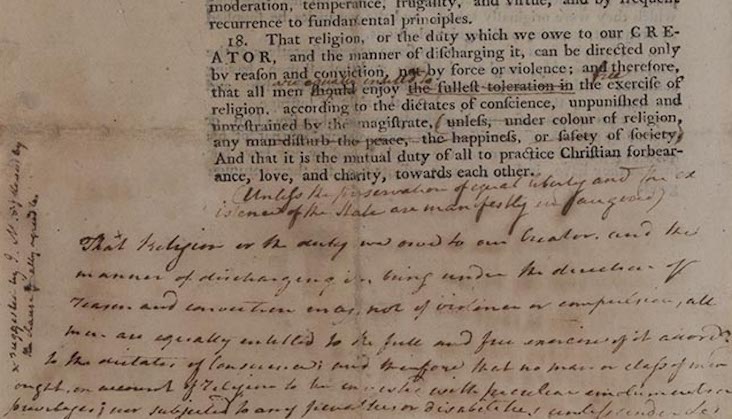 moderation, temperance, frugality, and virtue, and by frequent
recurrence to fundamental principles.
18. That religion, or the duty which we owe to our CRE-
ATOR, and the manner of discharging it, can be directed only
by reason and conviction, not by force or violence; and therefore,
are equally entitled to
full
that all men should enjoy the fullest toleration in the exercise of
religion, according to the dictates of conscience, unpunished and
unrestrained by the magistrate, (unless, under colour of religion,
any man disturb the peace, the happiness, or safety of society)
And that it is the mutual duty of all to practice Christian forbear-
ance, love, and charity, towards each other.
(Unless the preservation of equal liberty and the ex
istence of the State are manifestly endangered)
That Religion or the duty we owe to our Creator, and the
manner of discharging it, being under the direction of
reason and conviction only, not of violence or compulsion, all
men are equally entitled to the full and free exercise of it accordg
to the dictates of Conscience; and therefore that no man or class of men
ought, on account of religion to be invested with peculiar emoluments or
privileges; nor subjected to any penalties or disabilities unless under &c
x suggested by J. M.
the clause finally agreed to